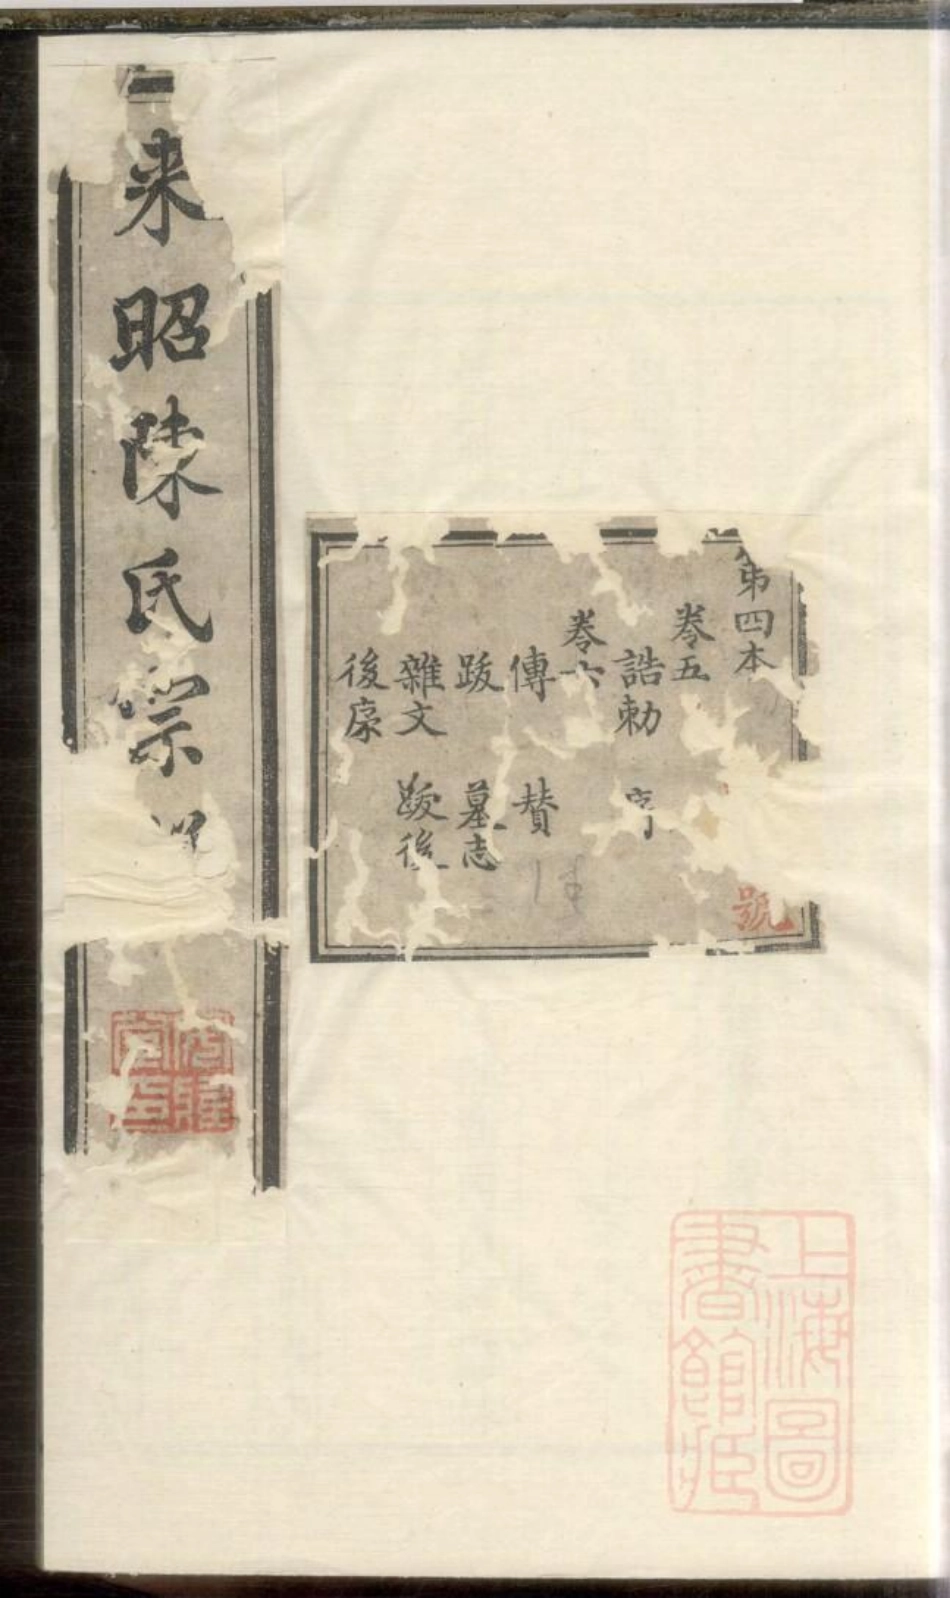 来昭陳氏宗
第四本
卷五
誥勅 序
卷六
傳 贊
跋 墓志
雜文 跋後
後序
號
上海圖
書館藏